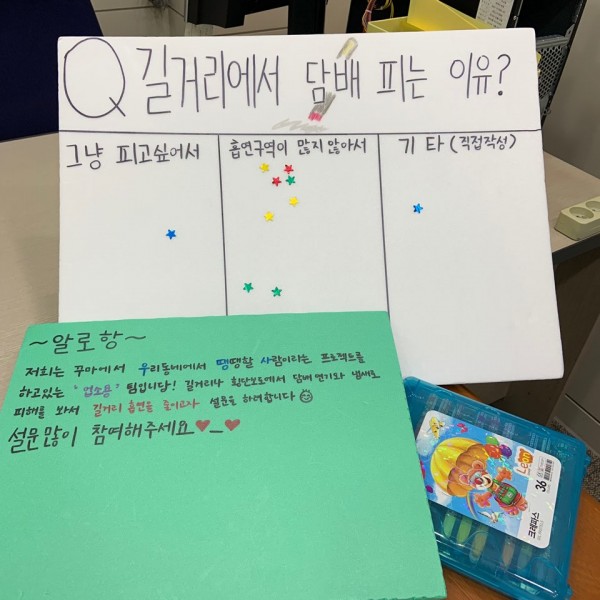 Q 길거리에서 담배 피는 이유?
그냥 피고싶어서
흡연구역이 많지 않아서
기타(직접작성)
~알로항~
저희는 꾸마에서 우리동네에서 땡땡할 사람이라는 프로젝트를
하고있는 '업소용' 팀입니다! 길거리나 횡단보도에서 담배 연기와 냄새로
피해를 봐서 길거리 흡연을 줄이고자 설문을 하려합니다
설문많이 참여해주세요♥_♥
36
크레파스